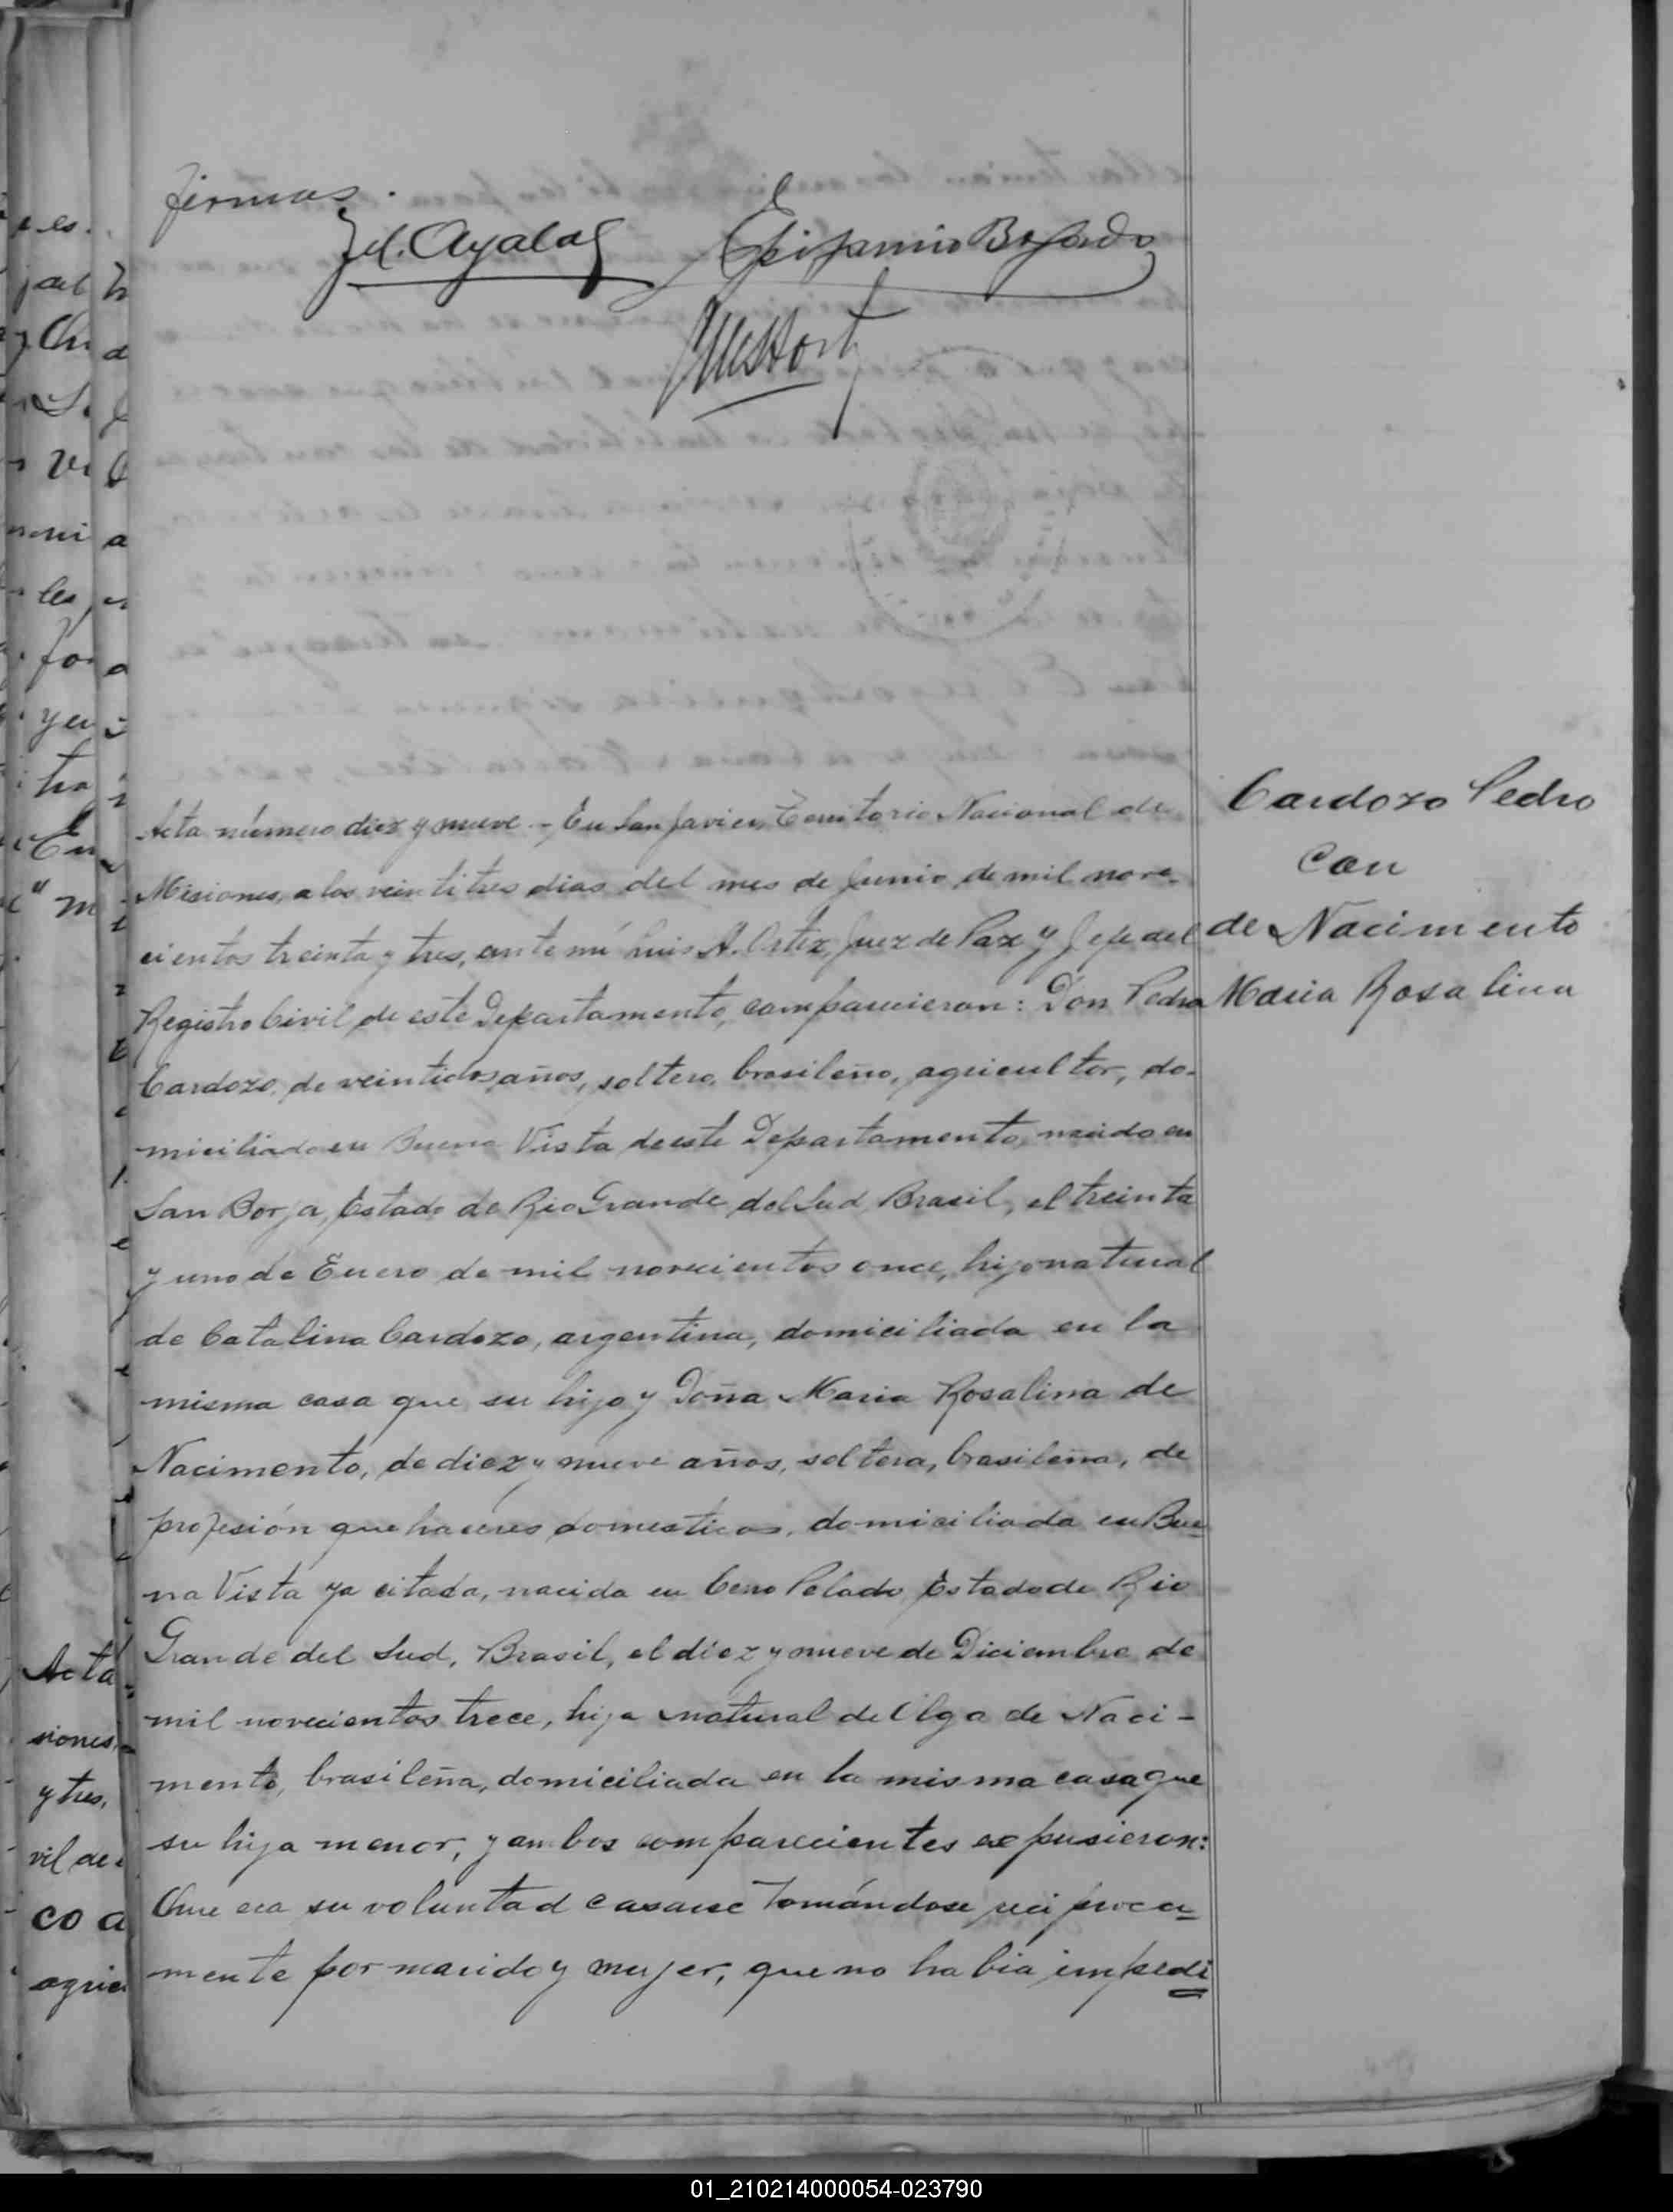 firmas.
Ayala Epifanio
Acta número diez y nueve.- En San Javier, Territorio Nacional de
Misiones, a los veintitres dias del mes de Junio de mil nove-
cientos treinta y tres, ante mí Luis A. Ortiz, Juez de Paz y Jefe del
Registro Civil de este Departamento, comparecieron: Don Pedro
Cardozo, de veintidos años, soltero, brasileño, agricultor, do-
miciliado en Buena Vista de este Departamento, nacido en
San Borja, Estado de Rio Grande del Sud, Brasil, el treinta
y uno de Enero de mil novecientos once, hijo natural
de Catalina Cardozo, argentina, domiciliada en la
misma casa que su hijo y Doña Maria Rosalina de
Nacimento, de diez y nueve años, soltera, brasileña, de
profesión quehaceres domesticos, domiciliada en Bue-
na Vista ya citada, nacida en Cerro Pelado, Estado de Rio
Grande del Sud, Brasil, el diez y nueve de Diciembre de
mil novecientos trece, hija natural de Olga de Naci-
mento, brasileña, domiciliada en la misma casa que
su hija menor, y ambos comparecientes expusieron:
Que era su voluntad casarse tomándose recíproca-
mente por marido y mujer, que no habia impedi
Cardozo Pedro
con
de Nacimento
Maria Rosalina
Acta
siones,
y tres,
vil de
co a
agric
01_210214000054-023790